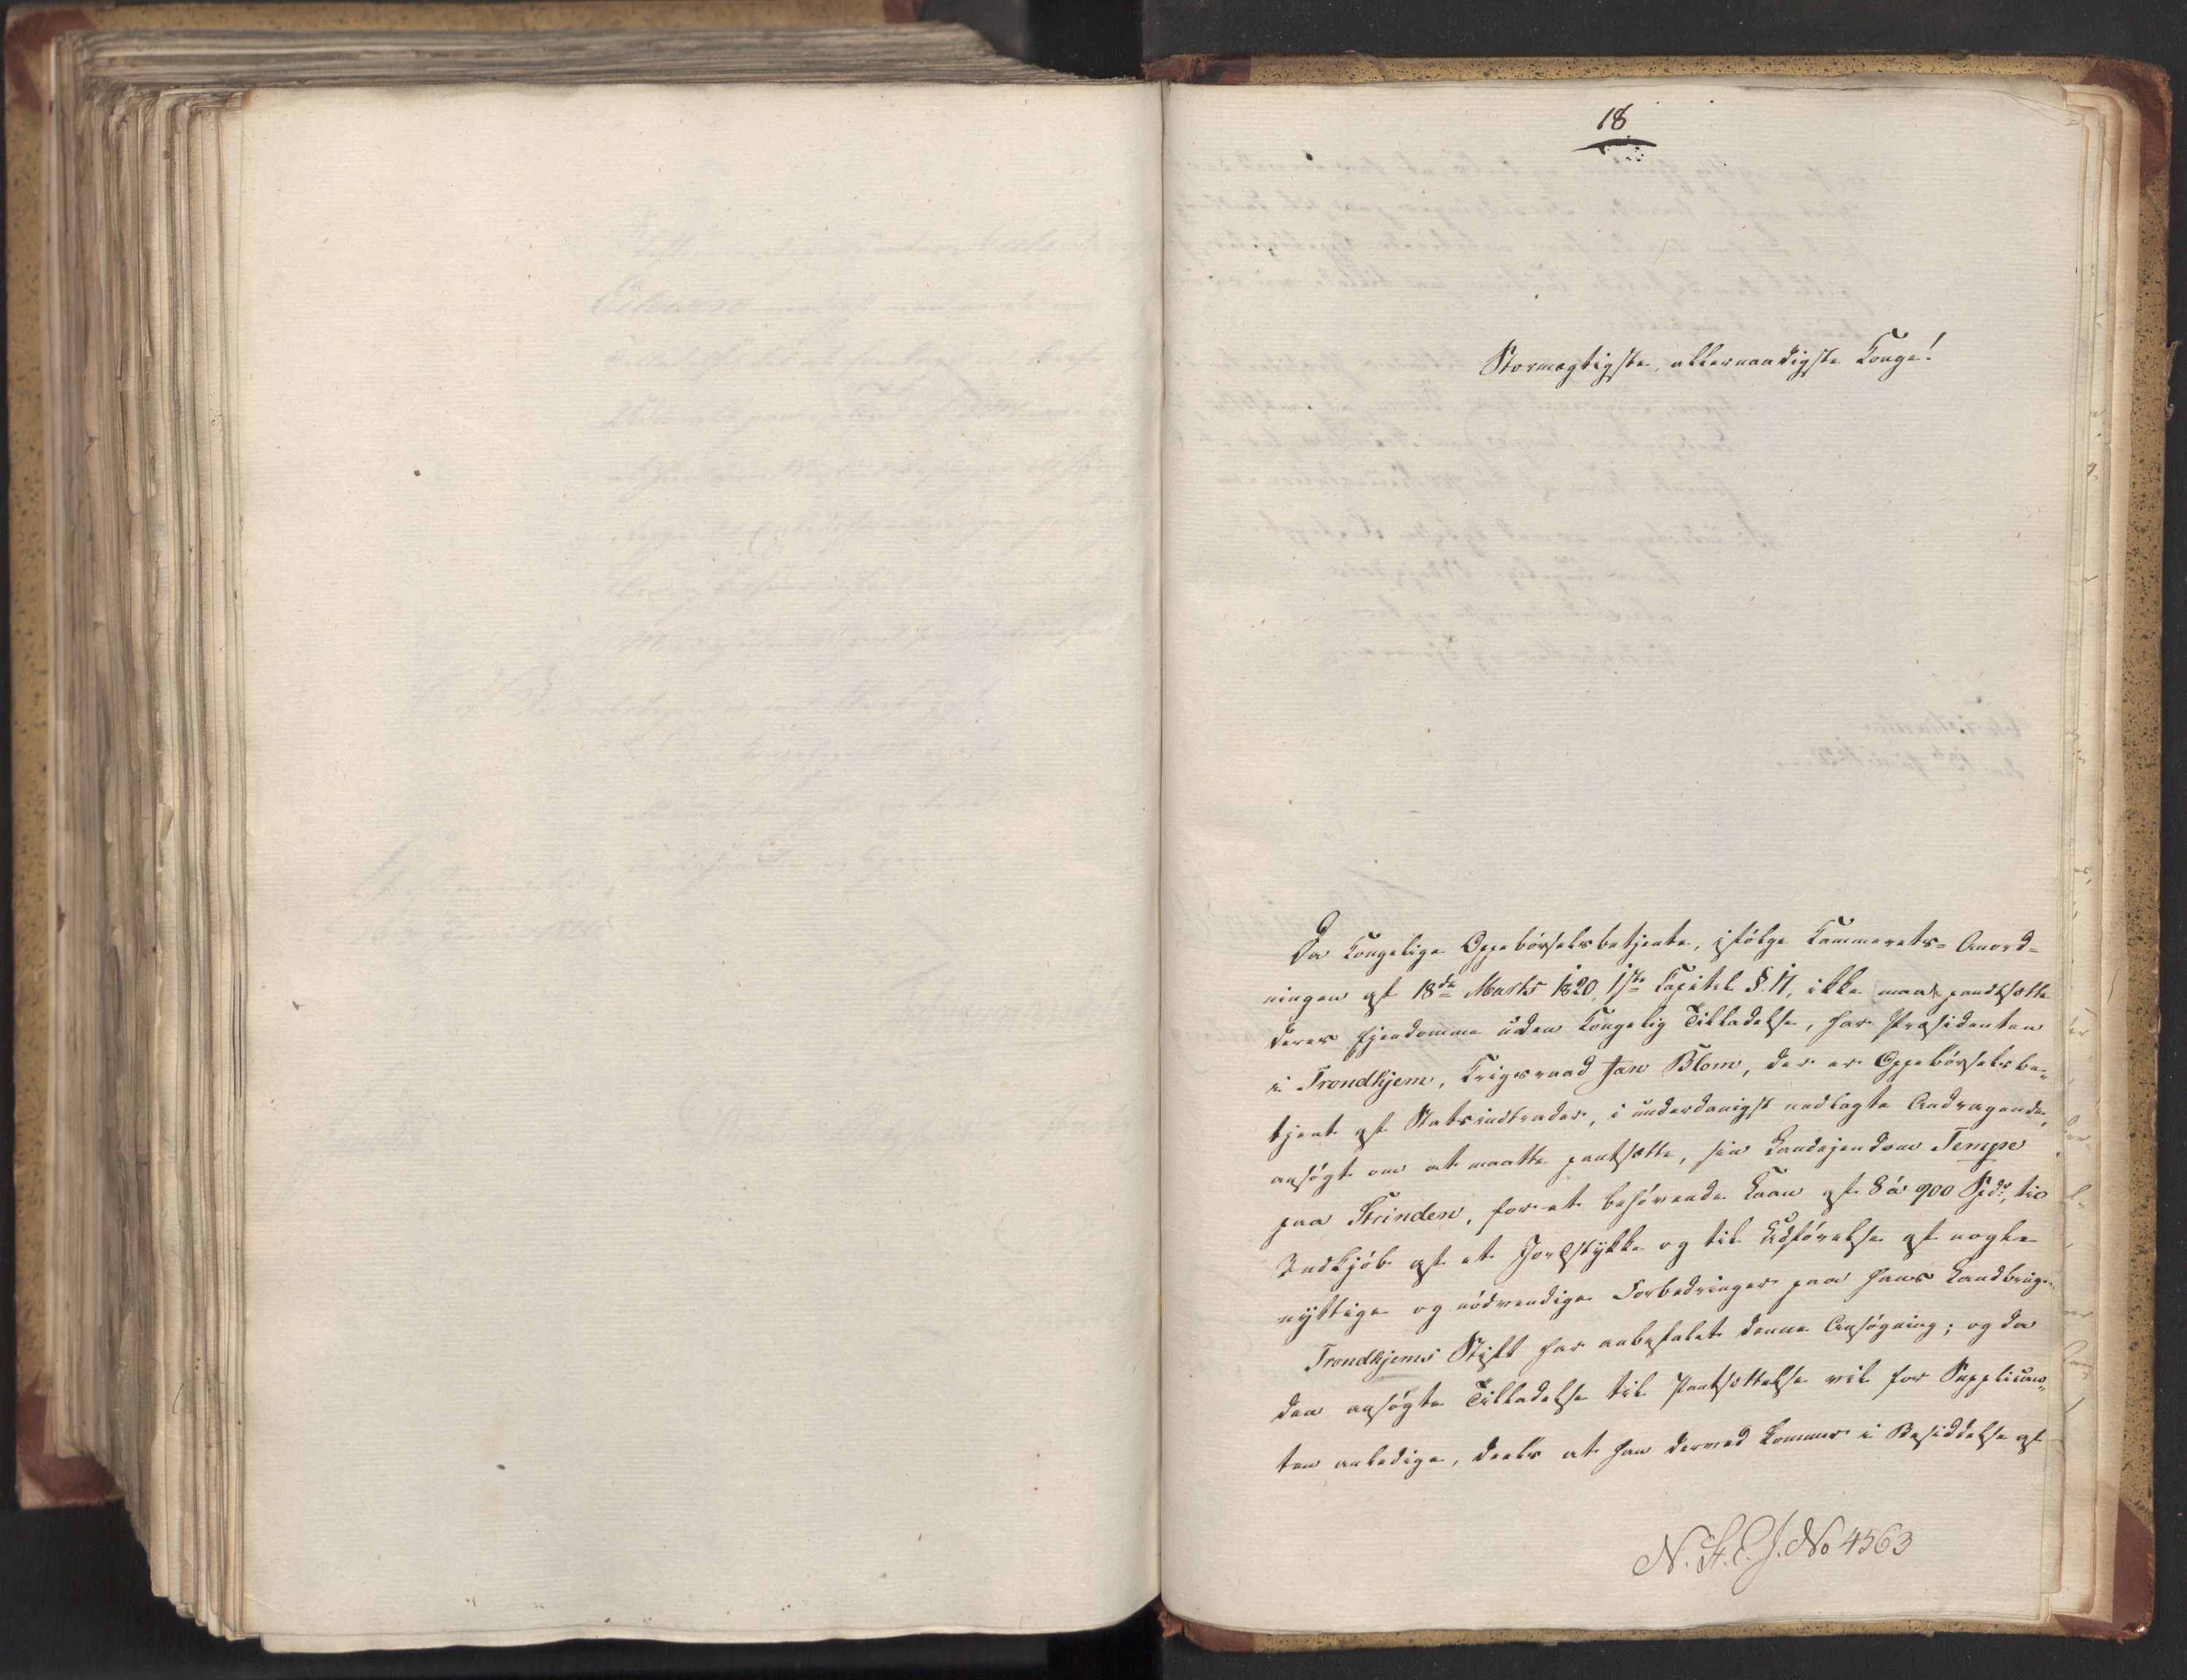 18
Stormægtigste, allernaadigste Konge!
Da Kongelige Oppebørselsbetjente, ifølge Kammerets-Anord-
ningen af 18de Marts 1820, 1ste Capitel §. 17, ikke maae pandtsætte
deres Ejendomme uden Kongelig Tilladelse, har Præsidenten
i Trondhjem, Krigsraad Jan Blom, der er Oppebørselsbe-
tjent af Statsindtrader, i underdanigst nedlagte Andragende,
ansøgt om at maatte pantsætte, sin Landejendom Tempe
paa Strinden, for et behøvende Laan af 8 à 900 Spdr, til
Indkjøb af et Jordstykke og til Udførelse af nogle
nyttige og nødvendige Forbedringer paa hans Landbrug.
Trondhjems Stift har anbefalet denne Ansøgning; og da
den ansøgte Tilladelse til Pantsættelse vil for Supplican-
ten anledige, deels at han dermed kommer i Besiddelse af
N. St. C. J. No 4563